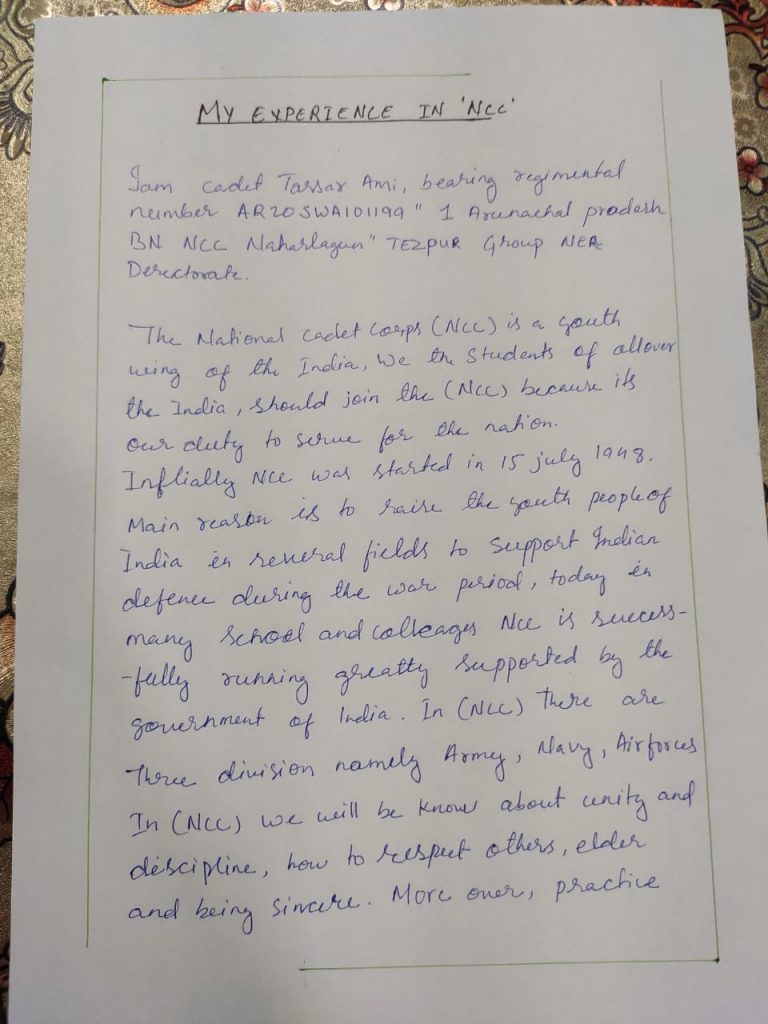 MY EXPERIENCE IN 'NCC'
Iam cadet Tassar Ami, bearing regimental
number AR20SWA101199" 1 Arunachal pradesh
BN NCC Naharlagun" TEZPUR Group NER
Derectorate.
The National Cadet Corps (NCC) is a youth
wing of the India, We the Students of allover
the India, should join the (NCC) because its
our duty to serve for the nation.
Inflially NCC was started in 15 july 1948.
Main reason is to raise the youth people of
India in several fields to Support Indian
defence during the war period, today in
many School and colleages NCC is success-
-fully running greatty supported by the
government of India. In (NCC) There are
Three division namely Army, Navy, Airforces
In (NCC) we will be know about unity and
discipline, how to respect others, elder
and being Sincere. More over, practice